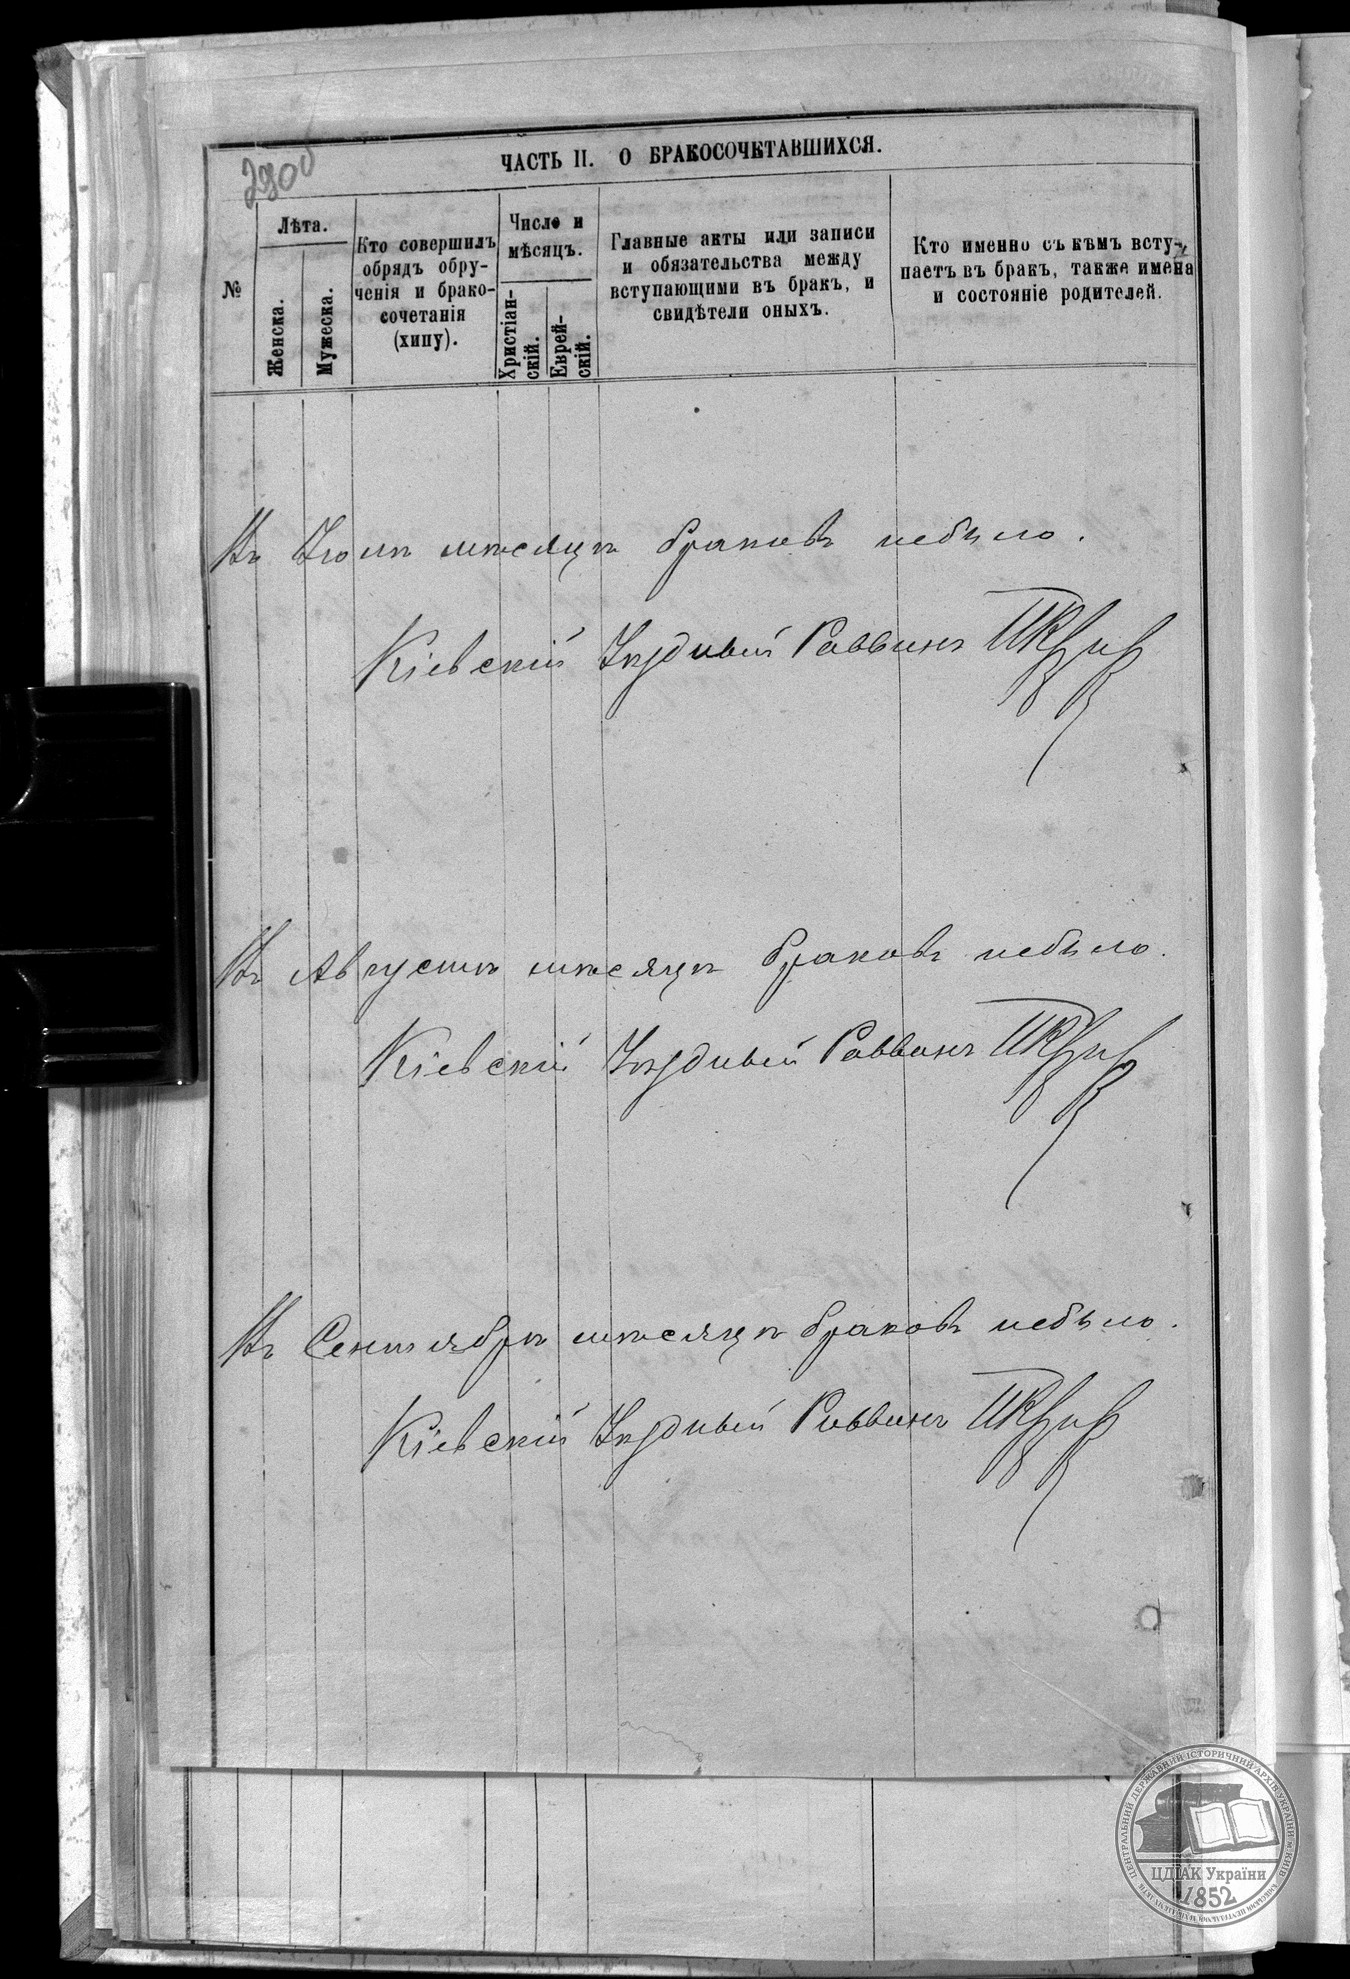 290об
ЧАСТЬ II. О БРАКОСОЧЕТАВШИХСЯ.
№
Лѣта.
Женска.
Мужеска.
Кто совершилъ
обрядъ обру-
ченія и брако-
сочетанія
(хипу).
Число и
мѣсяцъ.
Христіан-
скій.
Еврей-
скій.
Главные акты или записи
и обязательства между
вступающими въ брак, и
свидѣтели оныхъ.
Кто именно съ кѣмъ всту-
паетъ въ бракъ, также имена
и состояніе родителей.
Въ Іюлѣ мѣсяцѣ браковъ небыло.
Кіевскій Уѣздный Раввинъ
Въ Августѣ мѣсяцѣ браковъ небыло.
Кіевскій Уѣздный Раввинъ
Въ Сентябрѣ мѣсяцѣ браковъ небыло.
Кіевскій Уѣздный Раввинъ
ЦЕНТРАЛЬНИЙ ДЕРЖАВНИЙ ІСТОРИЧНИЙ АРХІВ УКРАЇНИ, м. КИЇВ
ЦДІАК України
1852